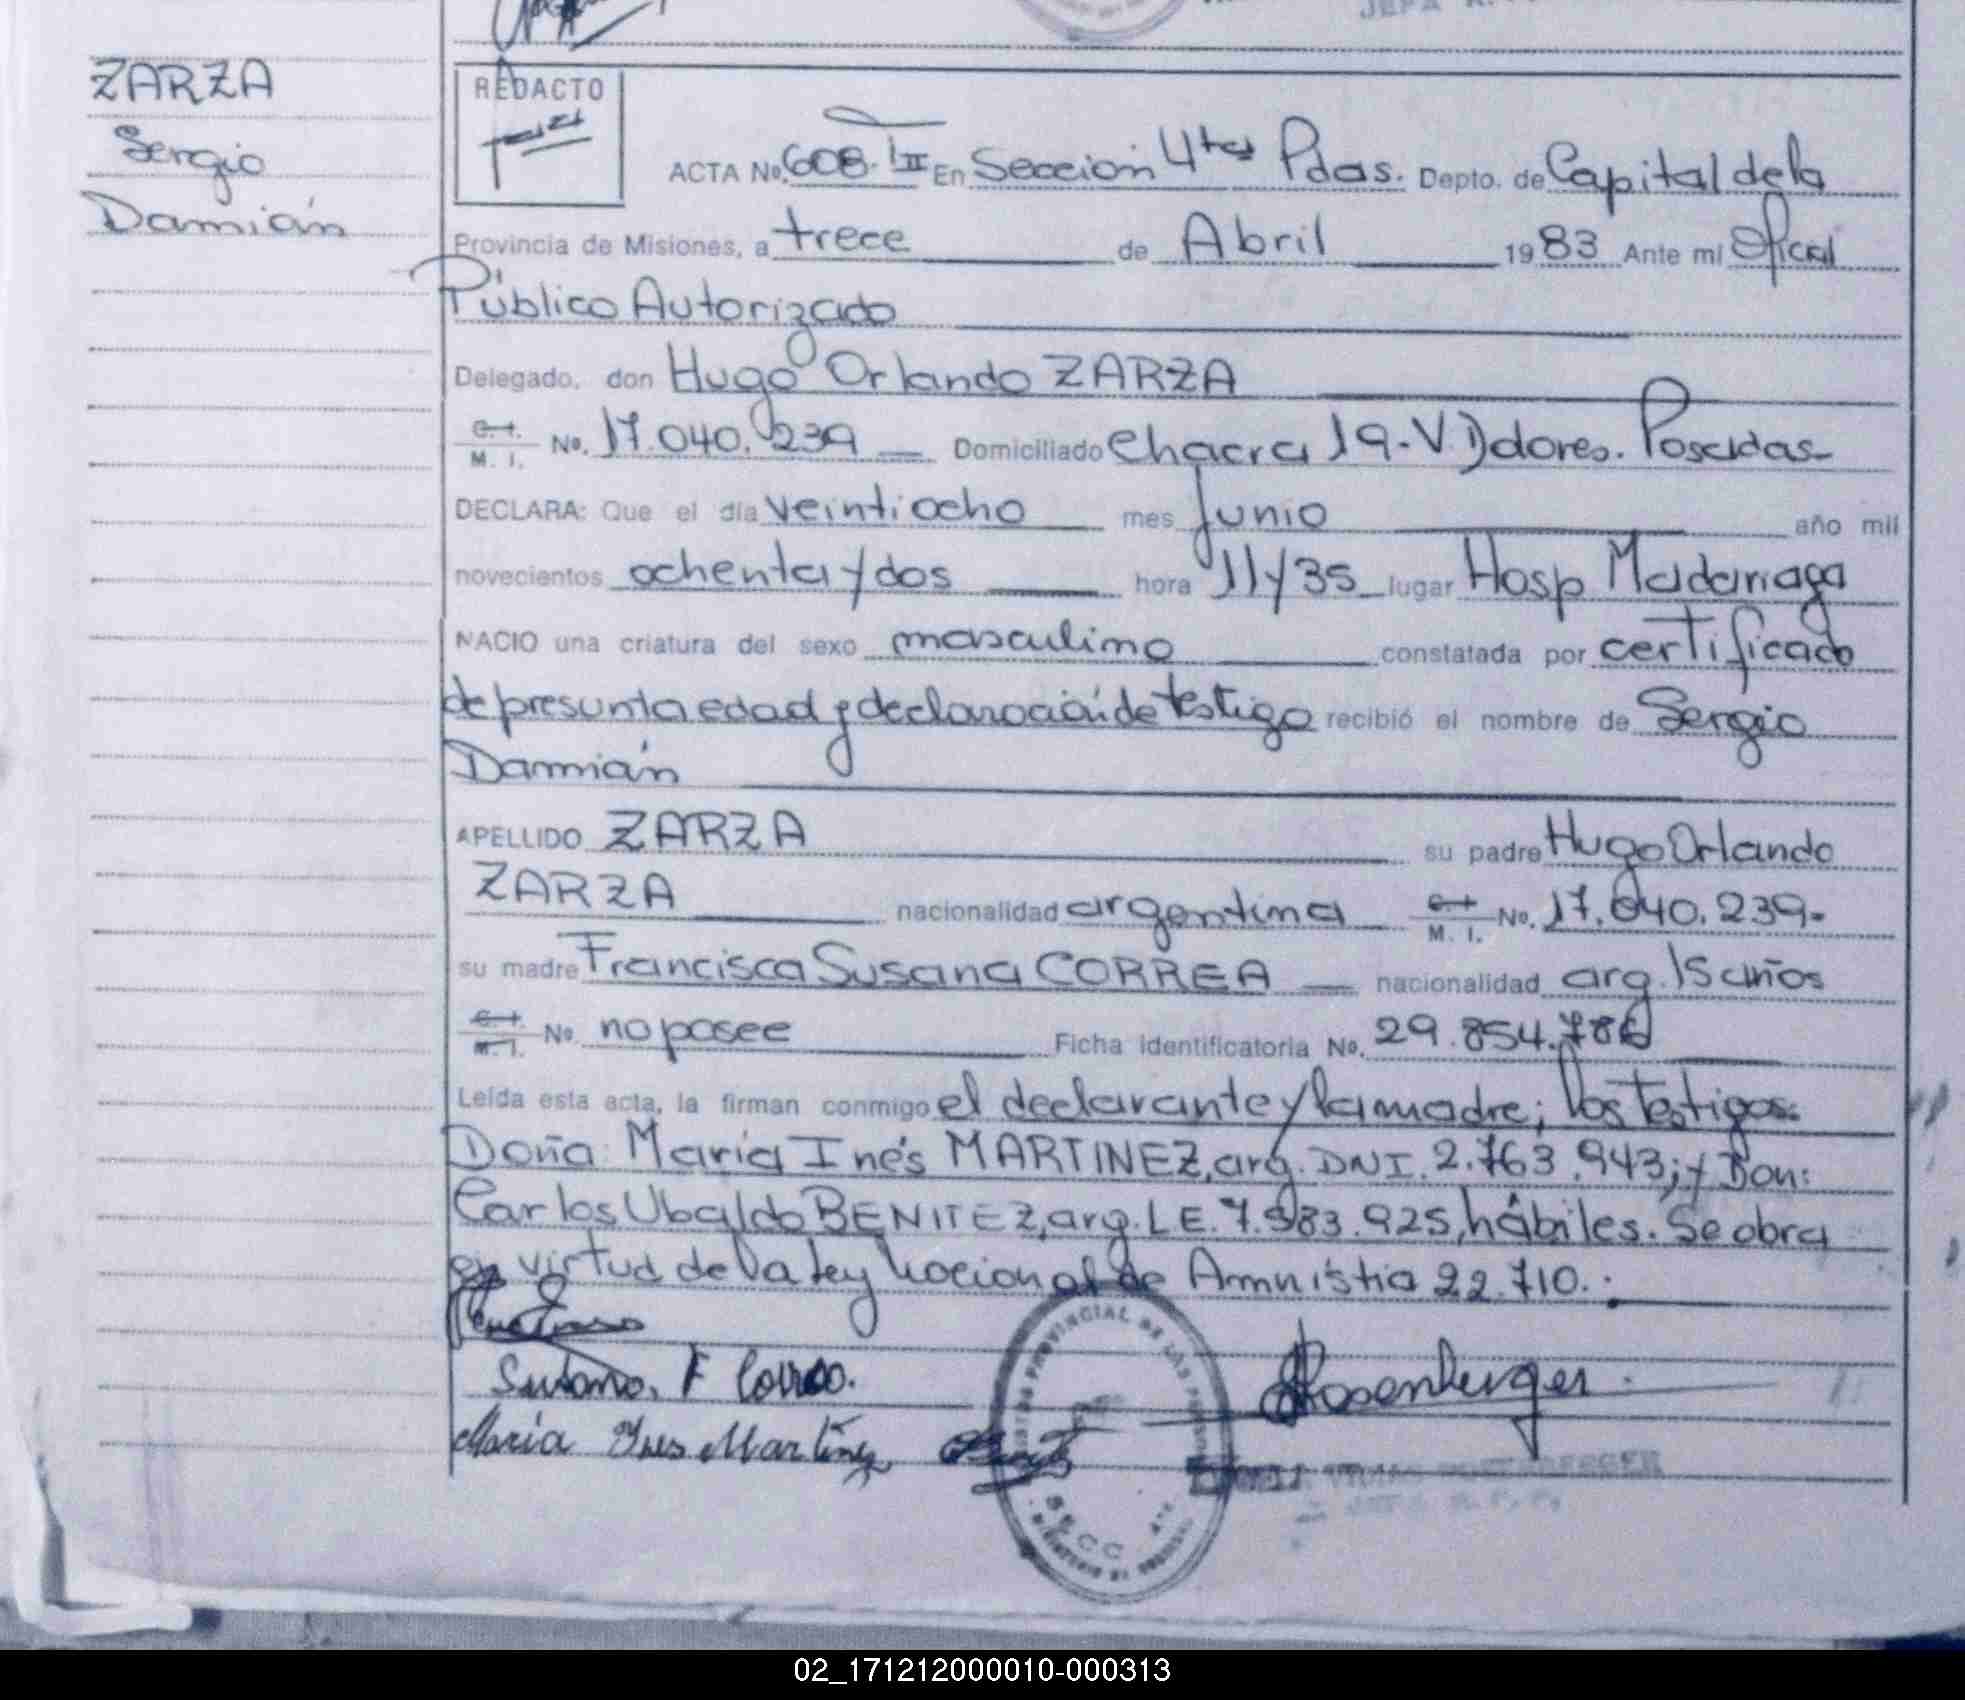 ZARZA
Sergio
Damián
REDACTO
ACTA No. 608. III En Sección 4ta Pdas. Depto. de Capital de la
Provincia de Misiones, a trece de Abril 1983 Ante mi Oficial
Público Autorizado
Delegado, don Hugo Orlando ZARZA
C. I. M. I. No. 17.040.239 Domiciliado Chacra 19-V. Ddores. Posadas
DECLARA: Que el día veintiocho mes Junio año mil
novecientos ochenta y dos hora 11 y 35 lugar Hosp Madariaga
NACIO una criatura del sexo masculino constatada por certificado
de presunta edad y declaración de testigo recibió el nombre de Sergio
Damián
APELLIDO ZARZA su padre Hugo Orlando
ZARZA nacionalidad argentina C. I. M. I. No. 17.040.239-
su madre Francisca Susana CORREA nacionalidad arg. 15 años
C. I. M. I. No. no posee Ficha Identificatoria No. 29.854.786
Leída esta acta, la firman conmigo el declarante y la madre; los testigos:
Doña: María Inés MARTINEZ, arg. DNI. 2.763.943; y Don:
Carlos Ubaldo BENITEZ, arg. L E. 7.983.925, hábiles. Se obra
en virtud de la Ley Nacional de Amnistía 22.710.
Susana. F Correa.
Rosenberger
María Ines Martinez
PROVINCIAL DE LAS PERSONAS
SECC. 4ta
02_171212000010-000313